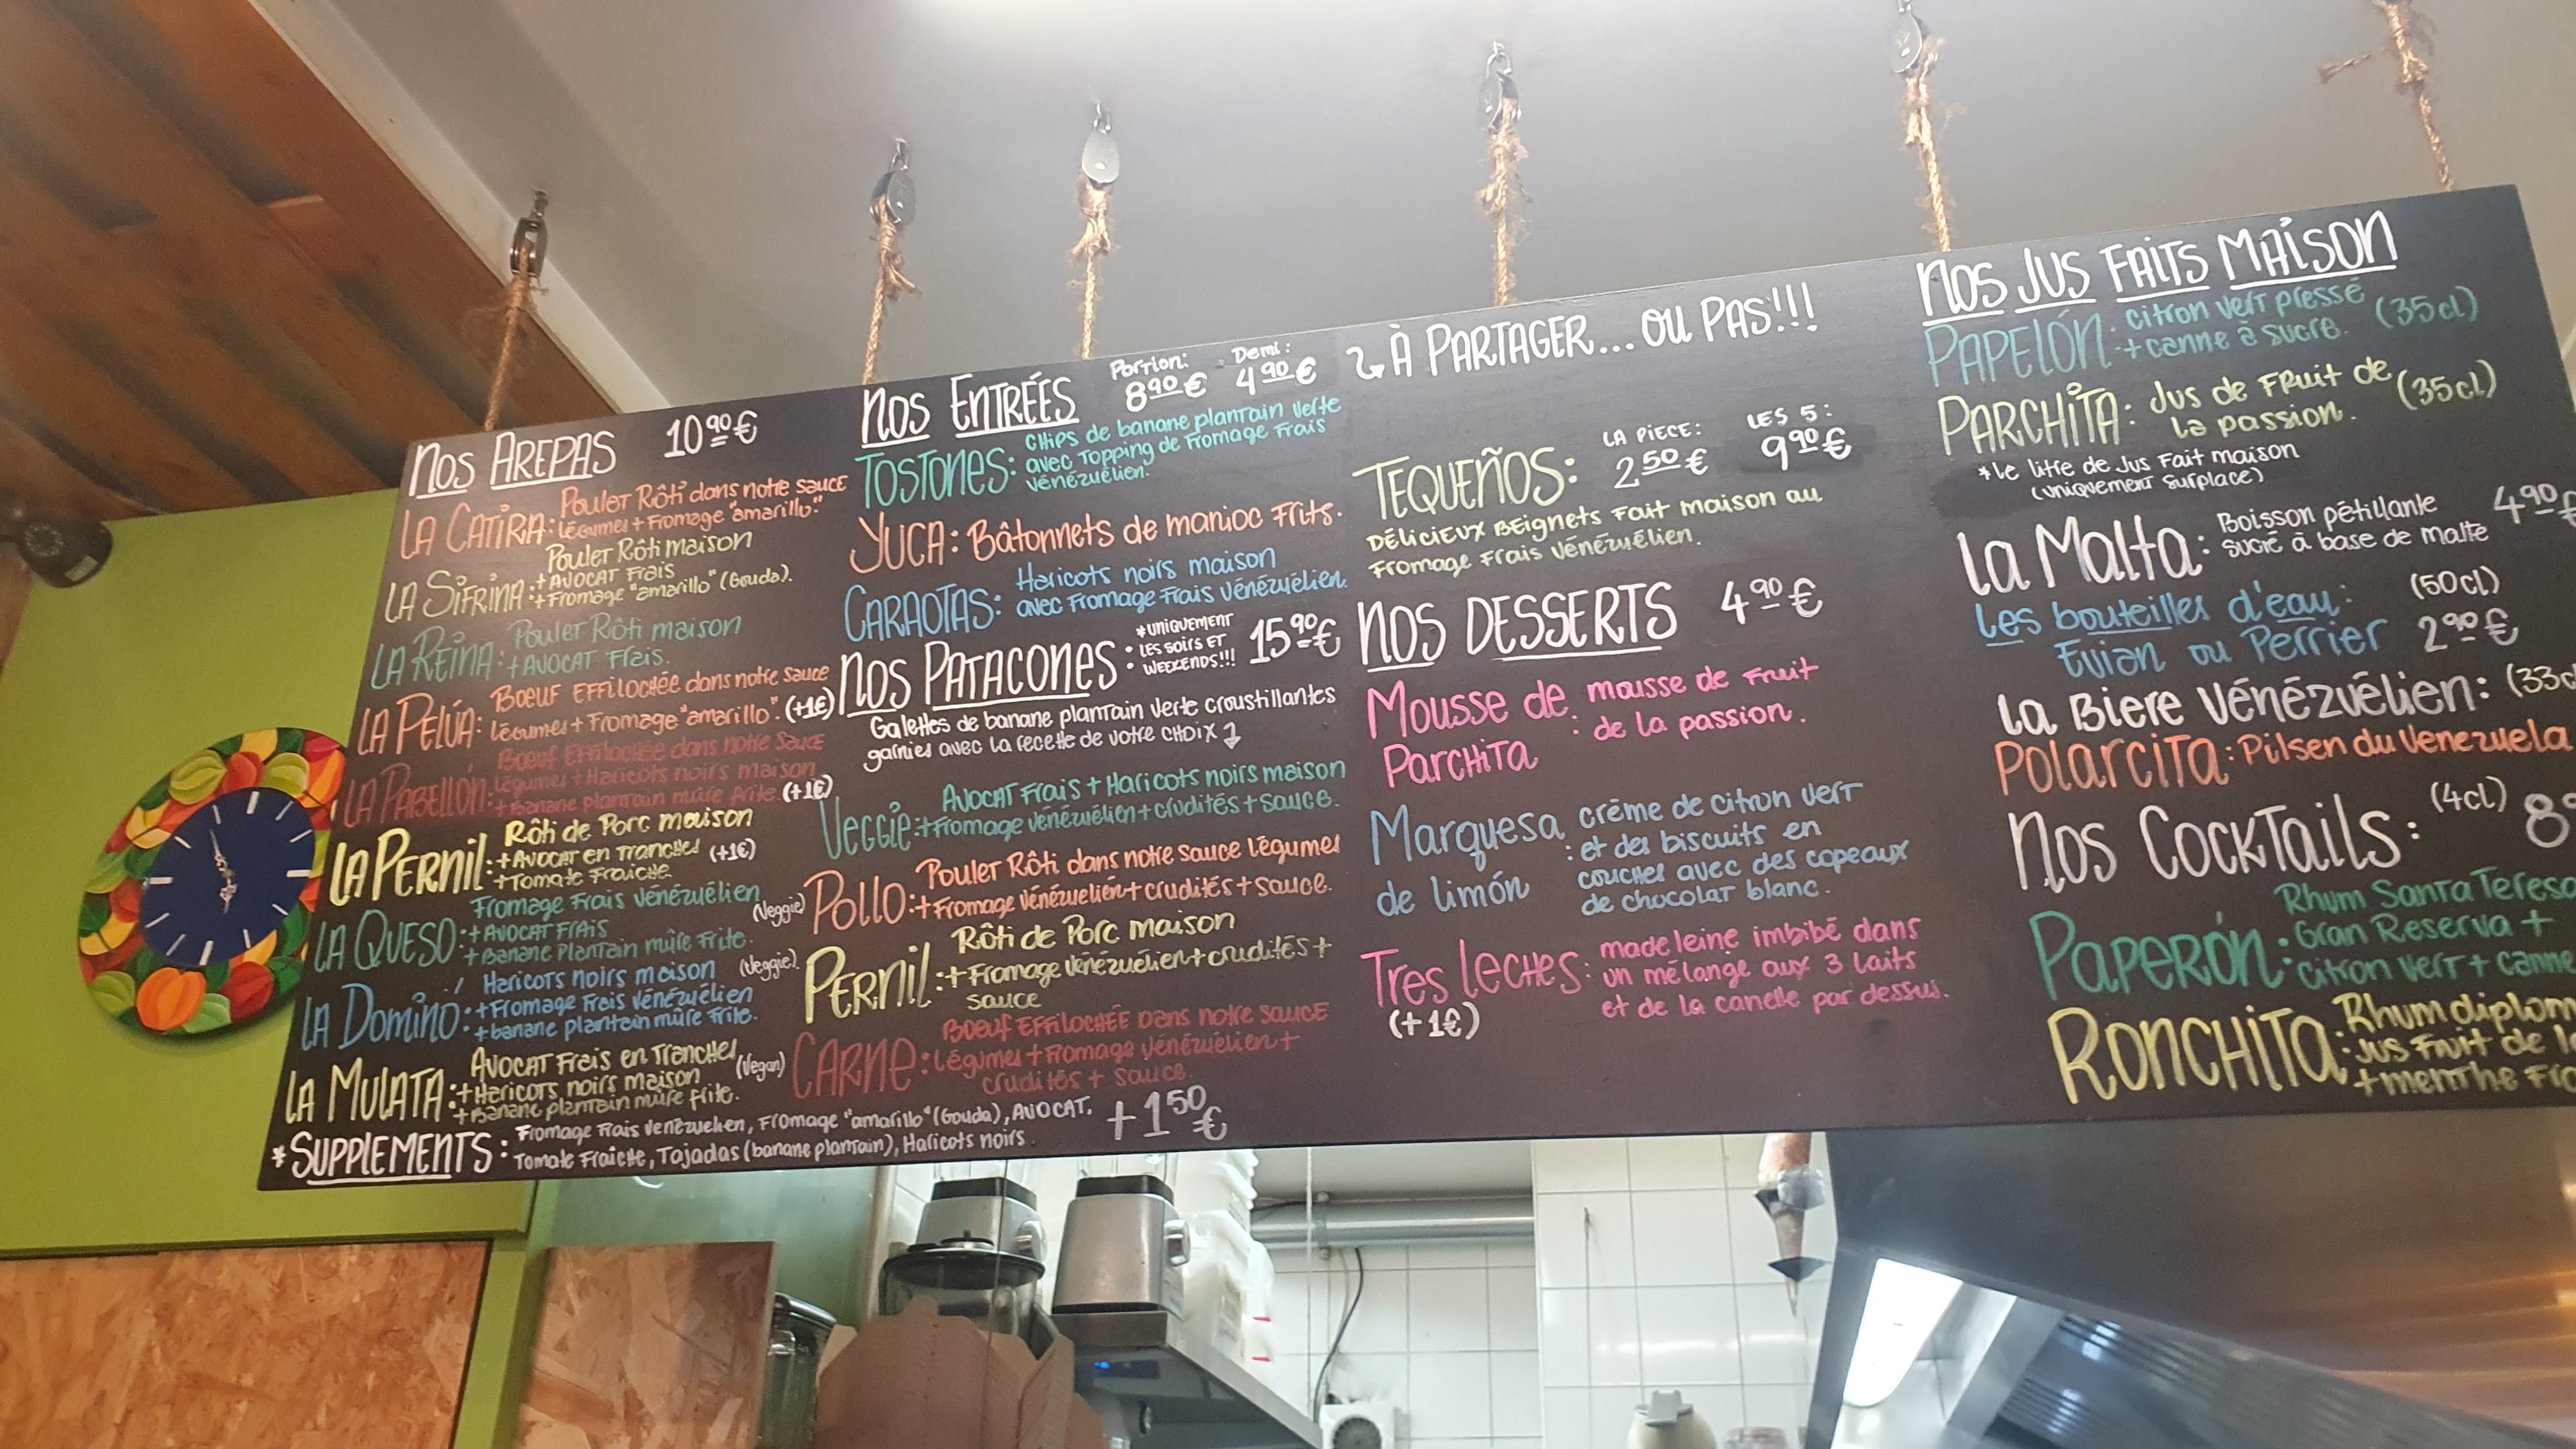 NOS AREPAS 10.90€
LA CATIRA: Poulet Rôti dans notre sauce
légumes + Fromage "amarillo".
LA SIFRINA: Poulet Rôti maison
+ Avocat Frais
+ Fromage "amarillo" (Gouda).
LA REINA: Poulet Rôti maison
+ Avocat Frais.
LA PELÚA: Boeuf Effilochée dans notre sauce
légumes + Fromage "amarillo". (+1€)
LA PABELLÓN: Boeuf Effilochée dans notre sauce
légumes + Haricots noirs maison
+ Banane plantain mûre frite. (+1€)
LA PERNIL: Rôti de Porc maison
+ Avocat en tranches (+1€)
+ Tomate Fraiche.
LA QUESO: Fromage Frais vénézuélien (Veggie)
+ Avocat Frais
+ Banane Plantain mûre Frite.
LA DOMINÓ: Haricots noirs maison (Veggie).
+ Fromage Frais vénézuélien
+ banane plantain mûre Frite.
LA MULATA: Avocat Frais en Tranches (Vegan)
+ Haricots noirs maison
+ Banane plantain mûre frite.
*SUPPLEMENTS: Fromage Frais Venezuelien, Fromage "amarillo" (Gouda), Avocat, +1.50€
Tomate Fraiche, Tajadas (banane plantain), Haricots noirs.
NOS ENTRÉES Portion: 8.90€ Demi: 4.90€
TOSTONES: Chips de banane plantain verte
avec Topping de Fromage Frais
vénézuélien.
YUCA: Bâtonnets de manioc Frits.
CARAOTAS: Haricots noirs maison
avec Fromage Frais vénézuélien.
NOS PATACONES: *UNIQUEMENT 15.90€
LES SOIRS ET
WEEKENDS!!!
Galettes de banane plantain verte croustillantes
garnies avec la recette de votre choix
Veggie: Avocat Frais + Haricots noirs maison
+ Fromage vénézuélien + crudités + sauce.
POLLO: Poulet Rôti dans notre sauce légumes
+ Fromage vénézuelien + crudités + sauce.
PERNIL: Rôti de Porc maison
+ Fromage vénézuélien + crudités +
sauce
CARNE: BOEUF EFFILOCHÉE dans notre sauce
légumes + Fromage vénézuélien +
crudités + sauce.
À PARTAGER... OU PAS!!!
TEQUEÑOS: LA PIECE: 2.50€ LES 5: 9.90€
Délicieux Beignets Fait maison au
Fromage Frais Vénézuélien.
NOS DESSERTS 4.90€
Mousse de Parchita : mousse de Fruit
de la passion.
Marquesa de limón : crème de citron vert
et des biscuits en
couches avec des copeaux
de chocolat blanc.
Tres leches: madeleine imbibé dans
un mélange aux 3 laits
et de la canelle par dessus.
(+1€)
NOS JUS FAITS MAISON
PAPELÓN: citron vert pressé
+ canne à sucre. (35cl)
PARCHITA: Jus de Fruit de
la passion. (35cl)
*le litre de Jus Fait maison
(uniquement surplace)
La Malta: Boisson pétillante 4.90€
sucré à base de malte
Les bouteilles d'eau: (50cl)
Evian ou Perrier 2.90€
La Biere Vénézuélien:
POLARCITA: Pilsen du Venezuela
Nos Cocktails: (4cl)
PAPERÓN: Rhum Santa Teresa
Gran Reserva +
citron vert + canne
RONCHITA: Rhum
Jus Fruit de
+ menthe